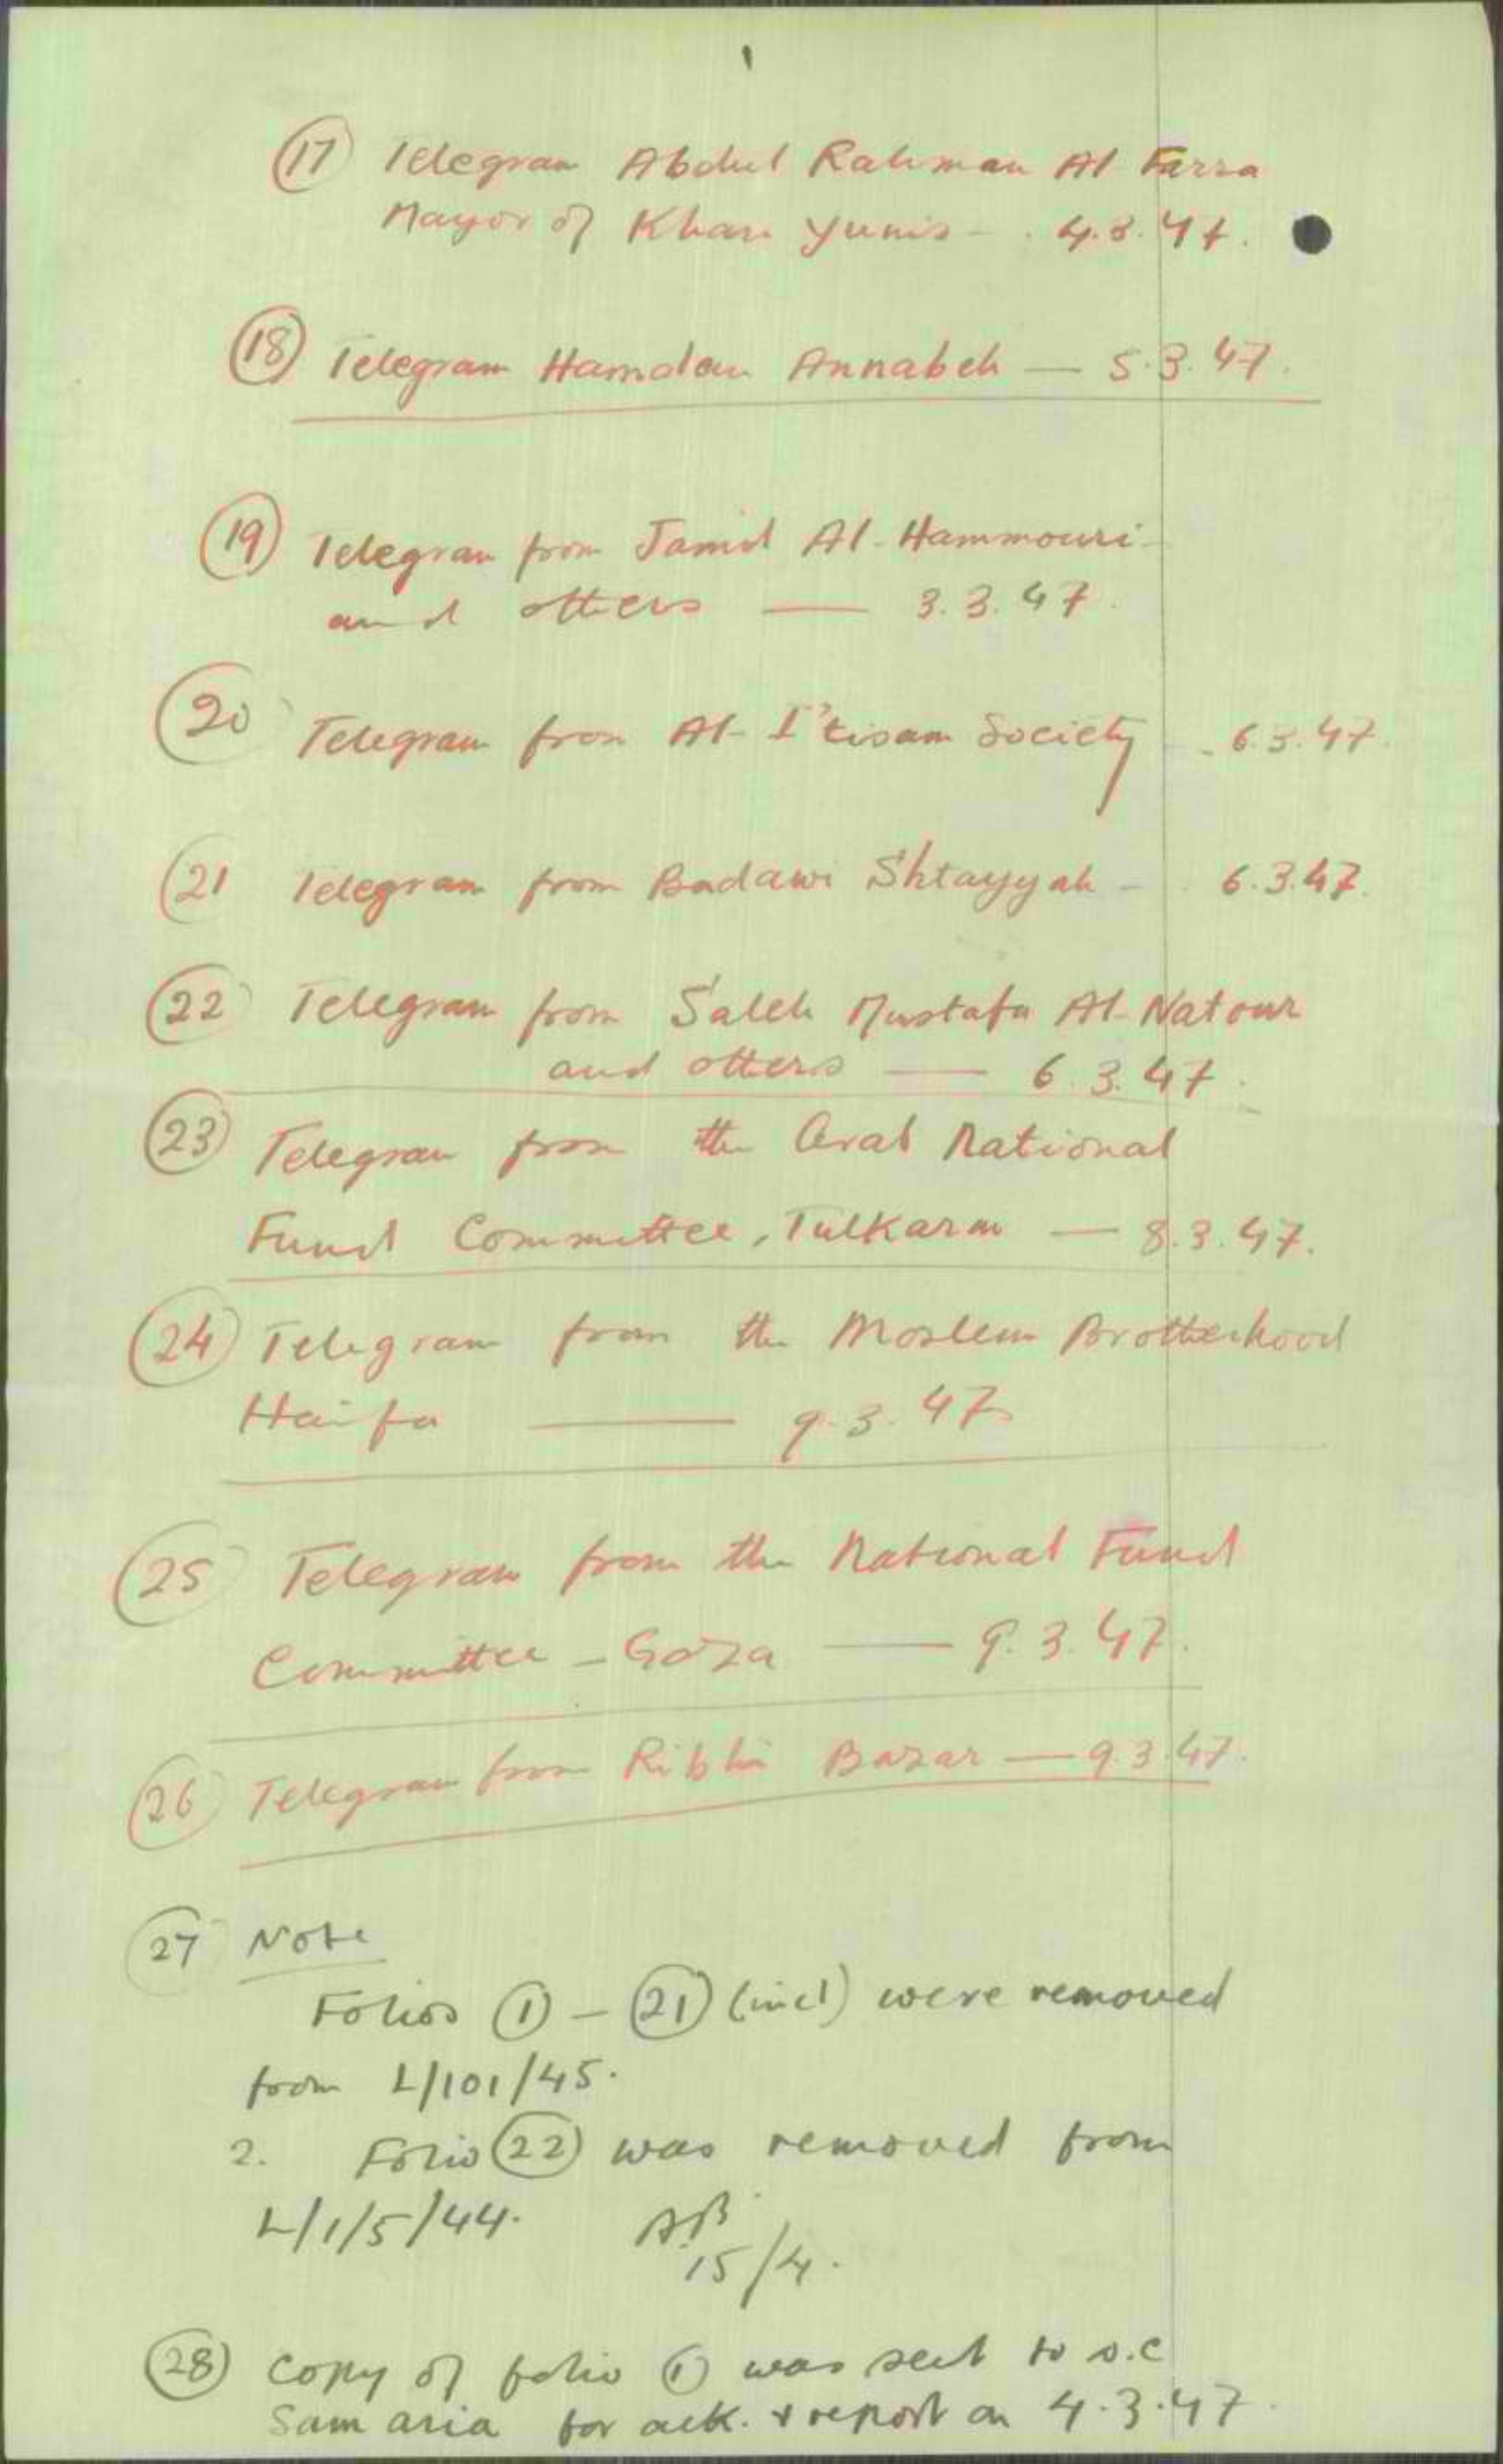 (17) Telegram Abdul Rahman Al Farra
Mayor of Khan Yunis - 4.3.47.
(18) Telegram Hamdan Annabeh — 5.3.47.
(19) Telegram from Jamil Al-Hammouri
and others — 3.3.47.
(20) Telegram from Al-I'tisam Society - 6.3.47.
(21 Telegram from Badawi Shtayyah - 6.3.47.
(22) Telegram from Saleh Mustafa Al-Natour
and others — 6.3.47.
(23) Telegram from the Arab National
Fund Committee, Tulkarm — 8.3.47.
(24) Telegram from the Moslem Brotherhood
Haifa — 9.3.47
(25) Telegram from the National Fund
Committee - Gaza — 9.3.47.
(26) Telegram from Ribhi Bazar — 9.3.47.
(27) Note
Folios (1) - (21) (incl) were removed
from L/101/45.
2. Folio (22) was removed from
L/1/5/44. AB
15/4.
(28) Copy of folio (1) was sent to D.C
Samaria for ack. & report on 4.3.47.